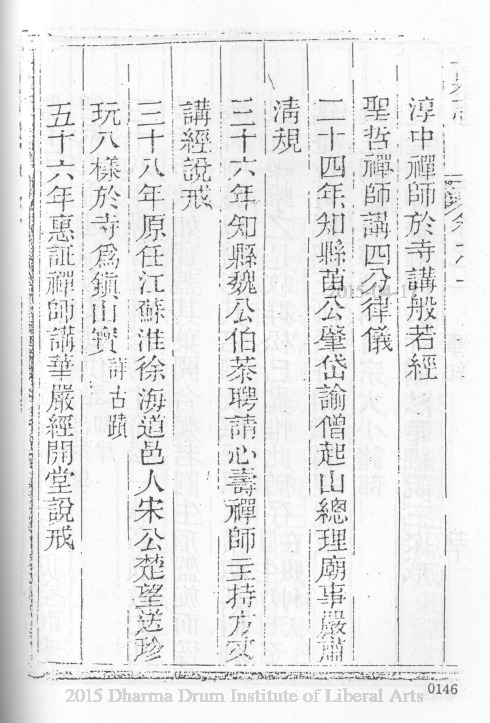 淳中禪師於寺講般若經
聖哲禪師講四分律儀
二十四年知縣苗公肇岱諭僧起山總理廟事嚴肅
清規
三十六年知縣魏公伯恭聘請心壽禪師主持方丈
講經說戒
三十八年原任江蘇淮徐海道邑人宋公楚望送珍
玩八樣於寺爲鎮山寶 詳古蹟
五十六年惠証禪師講華嚴經開堂說戒
0146
2015 Dharma Drum Institute of Liberal Arts